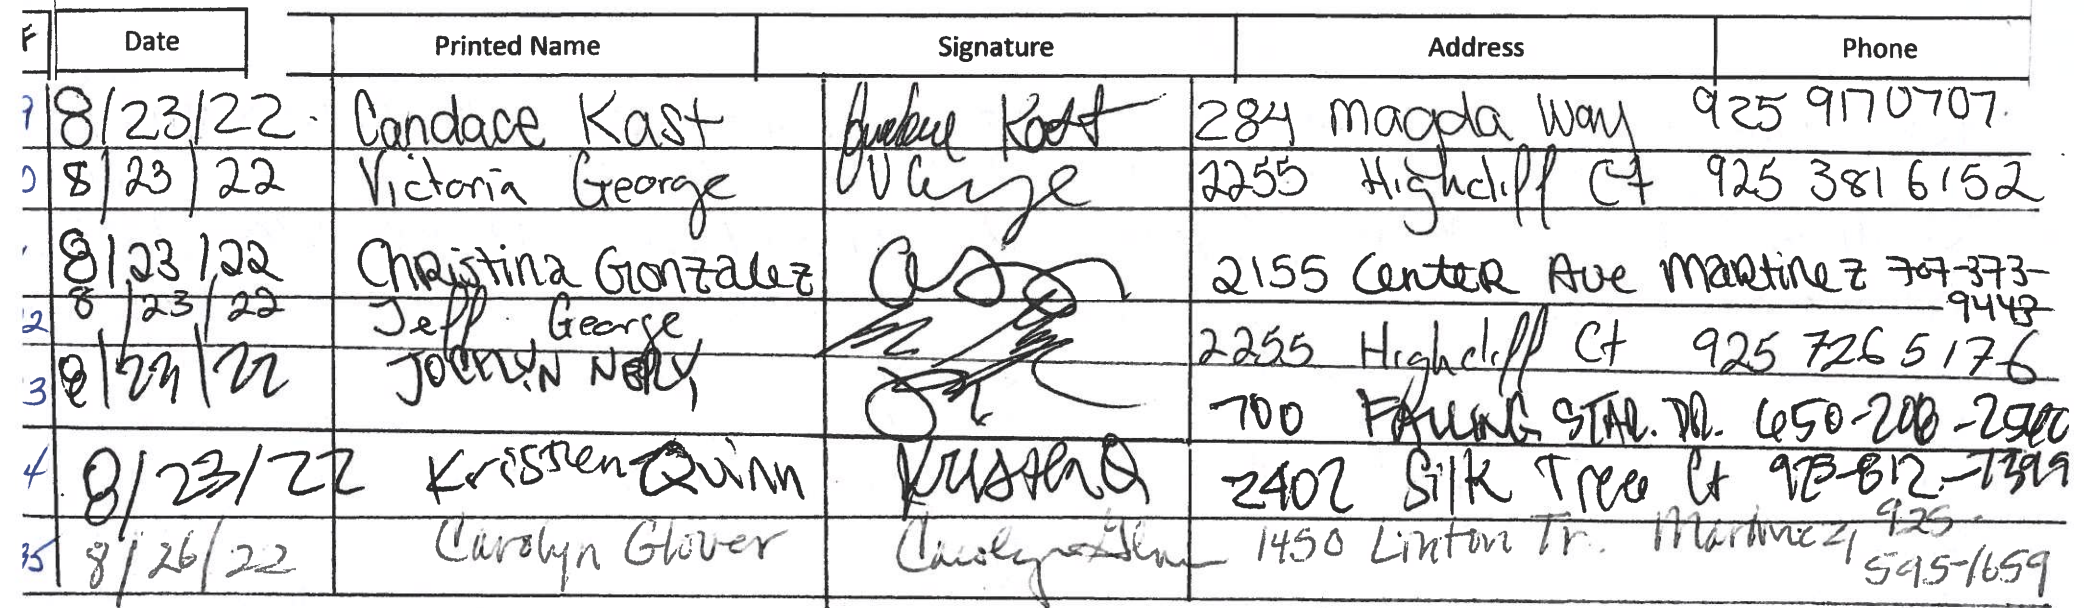 Date Printed Name Signature Address Phone
8/23/22 Candace Kast Kast 284 Magda Way 925 9170707
8/23/22 Victoria George 2255 Highcliff Ct 925 381 6152
8/23/22 Christina Gonzalez 2155 Center Ave Martinez 707-373-
9443
8/23/22 Jeff George 2255 Highcliff Ct 925 726 5176
700 FALLING STAR. DR. 650-
4 8/23/22 Kristen Quinn Kristen Q 2402 Silk Tree Ct
35 8/26/22 Carolyn Glover Carolyn 1450 Linton Tr. Martinez, 925-
595-1659